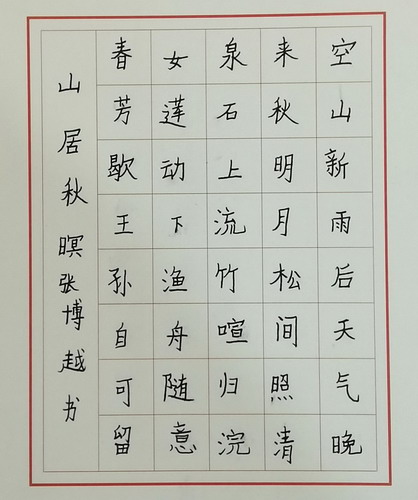 空山新雨后天气晚
来秋明月松间照清
泉石上流竹喧归浣
女莲动下渔舟随意
春芳歇王孙自可留
山居秋暝张博越书